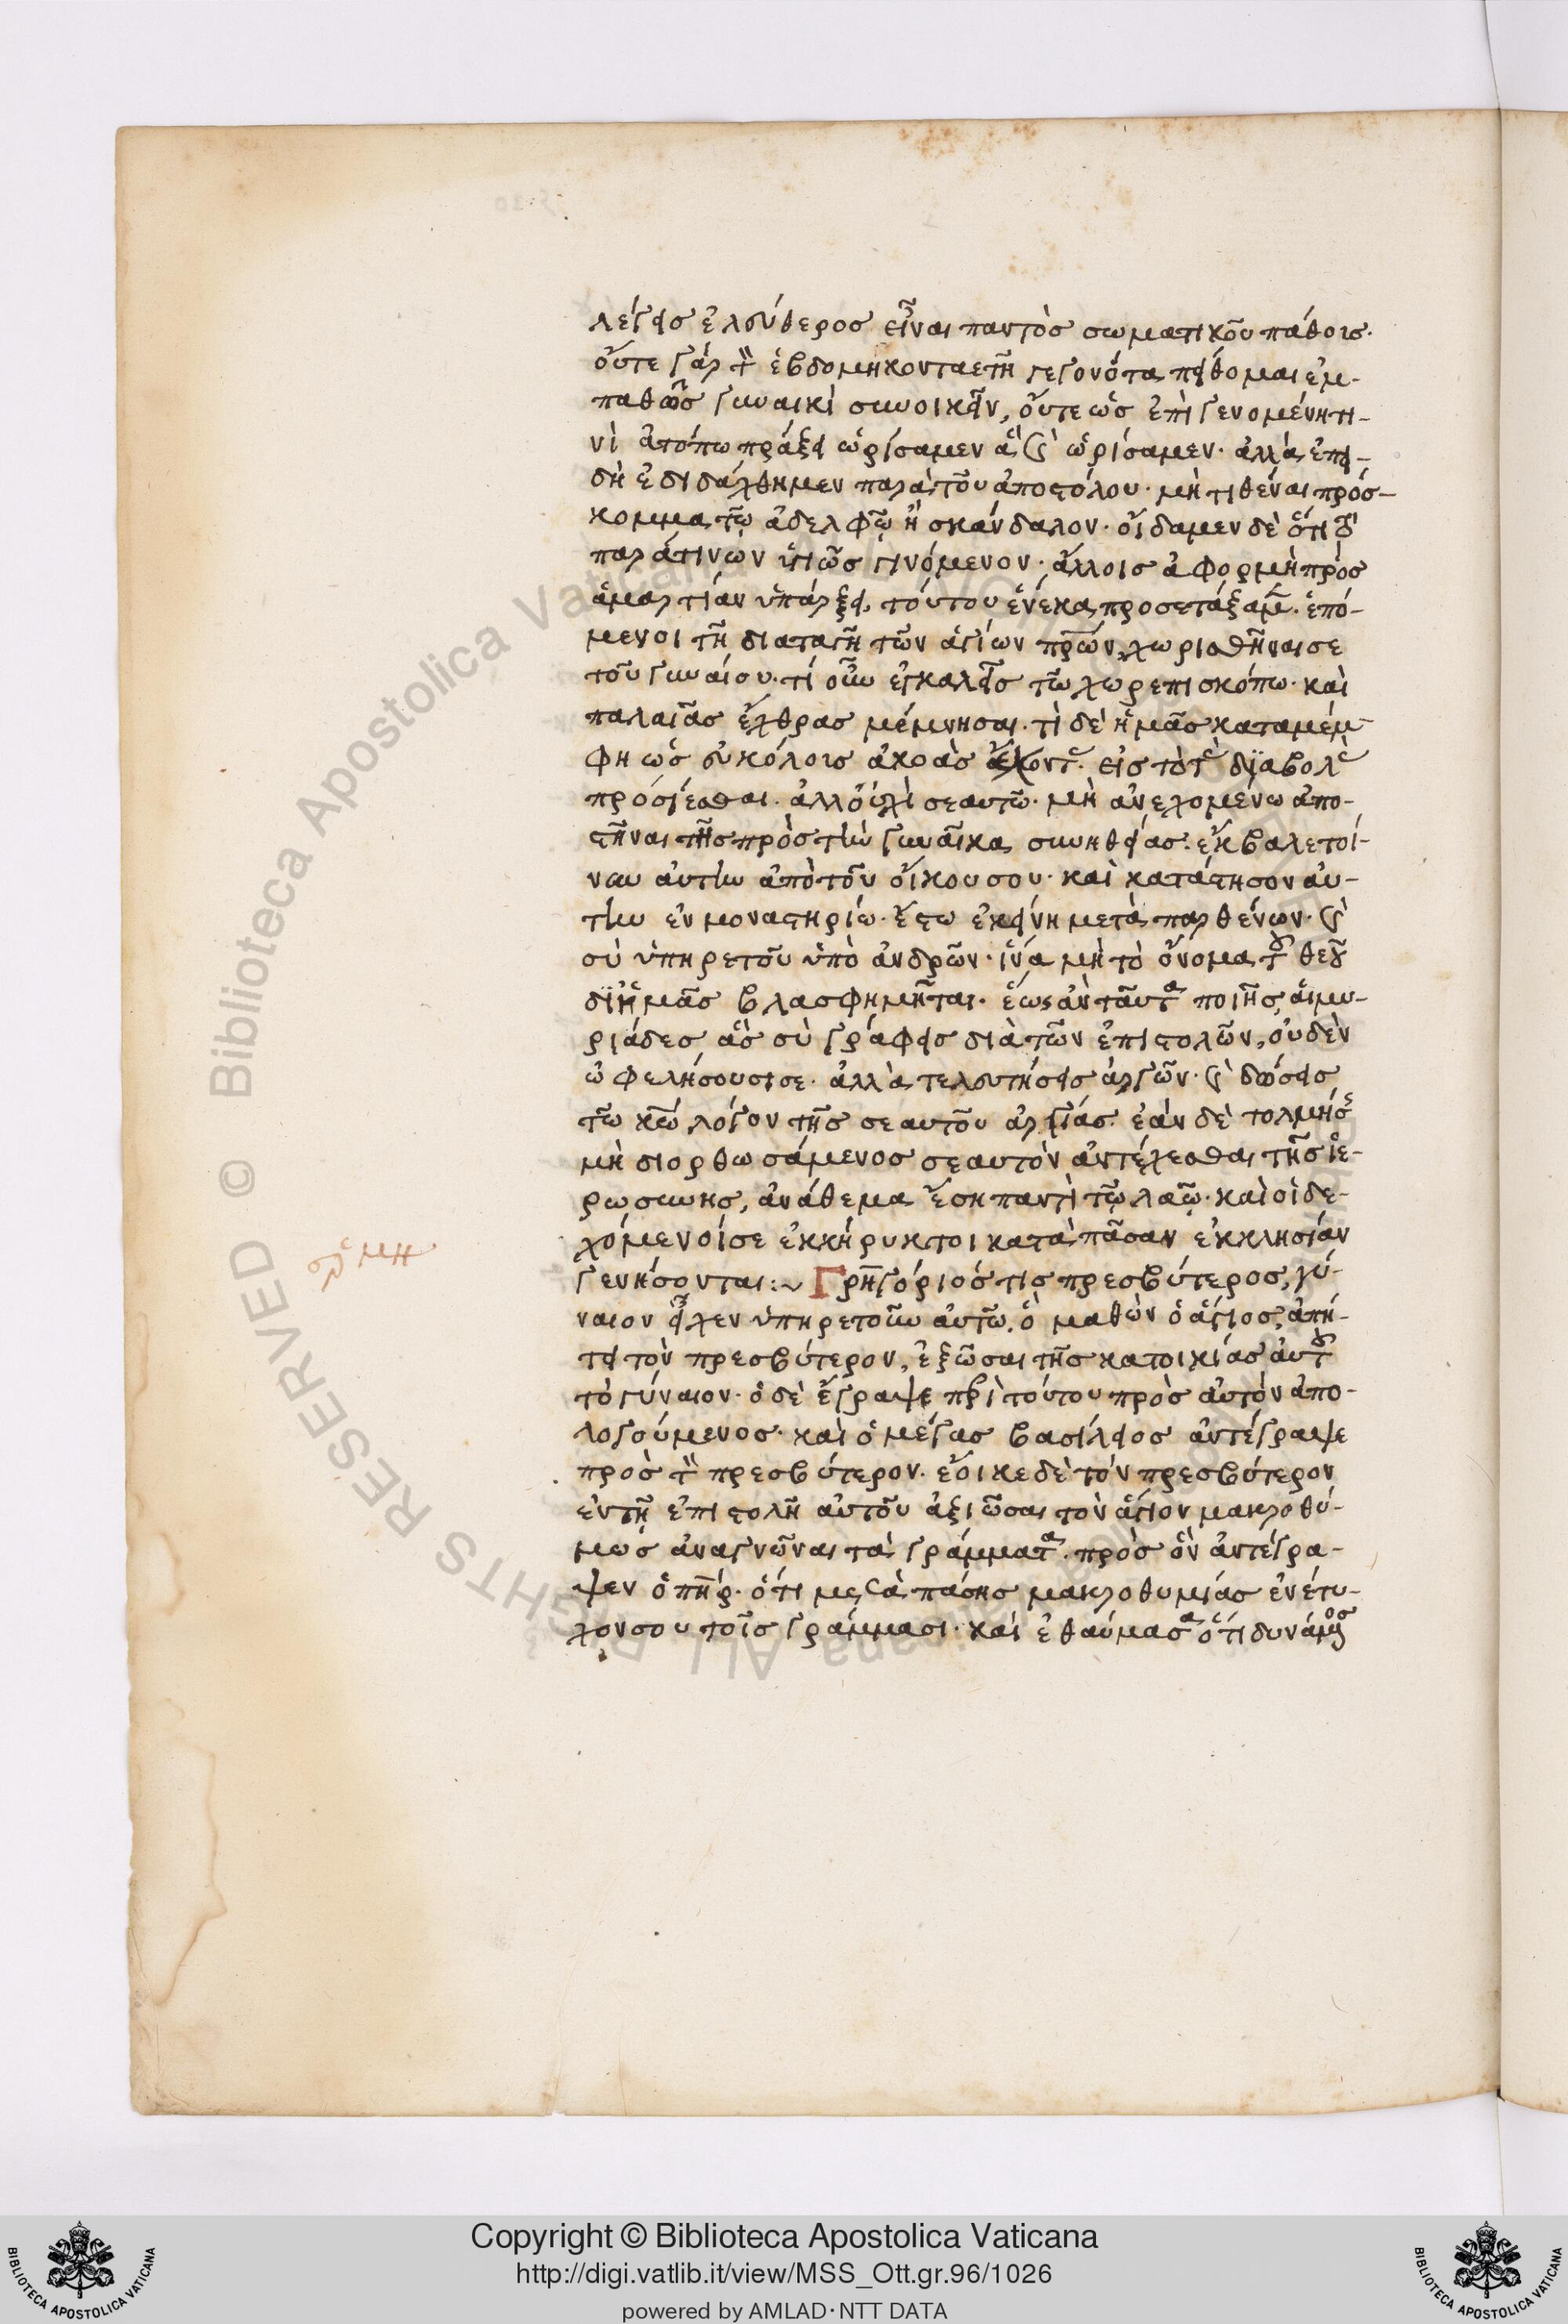 λέγεις ἐλεύθερος εἶναι παντὸς σωματικοῦ πάθους·
οὔτε γὰρ τὸν ἑβδομηκονταετῆ γεγονότα πείθομαι ἐμ-
παθῶς γυναικὶ συνοικεῖν, οὔτε ὡς ἐπὶ γενομένη τι-
νὶ ἀτόπω πράξει ὡρίσαμεν ἃ καὶ ὡρίσαμεν· ἀλλὰ ἐπει-
δὴ ἐδιδάχθημεν παρὰ τοῦ ἀποστόλου· μὴ τιθέναι πρόσ-
κομμα τῶ ἀδελφῶ ἢ σκάνδαλον· οἴδαμεν δὲ ὅτι τὸ
παρά τινων ὑγιῶς γινόμενον· ἄλλοις ἀφορμὴ πρὸς
ἁμαρτίαν ὑπάρξει, τούτου ἕνεκα προσετάξαμεν· ἑπό-
μενοι τῆ διαταγῆ τῶν ἁγίων πρων, χωρισθῆναι σε
τοῦ γυναίου· τί οὖν ἐγκαλεῖς τῶ χωρεπισκόπω· καὶ
παλαιᾶς ἔχθρας μέμνησαι· τί δὲ ἡμᾶς καταμέμ-
φη ὡς εὐκόλοις ἀκοὰς ἔχοντας εἰς τὸ τὰς διαβολὰς
προσίεσθαι· ἀλλ' οὐχὶ σεαυτῶ· μὴ ἀνεχομένω ἀπο-
στῆναι τῆς πρὸς τὴν γυναῖκα συνηθείας· ἔκβαλε τοί-
νυν αὐτὴν ἀπὸ τοῦ οἴκου σου· καὶ κατάστησον αὐ-
τὴν ἐν μοναστηρίω· ἔστω ἐκείνη μετὰ παρθένων· καὶ
σὺ ὑπηρετοῦ ὑπὸ ἀνδρῶν· ἵνα μὴ τὸ ὄνομα τοῦ θεοῦ
δι' ἡμᾶς βλασφημῆται· ἕως ἂν ταῦτα ποιῆς, αἱ μυ-
ριάδες ἃς σὺ γράφεις διὰ τῶν ἐπιστολῶν, οὐδὲν
ὠφελήσουσι σε· ἀλλὰ τελευτήσεις ἀργῶν· καὶ δώσεις
τῶ κω λόγον τῆς σεαυτοῦ ἀργίας· ἐὰν δὲ τολμήσης
μὴ διορθωσάμενος σεαυτὸν ἀντέχεσθαι τῆς ἱε-
ρωσύνης, ἀνάθεμα ἔση παντὶ τῶ λαῶ· καὶ οἱ δε-
χόμενοί σε ἐκκήρυκτοι κατὰ πᾶσαν ἐκκλησίαν
γενήσονται:~ Γρηγόριός τις πρεσβύτερος, γύ-
ναιον εἶχεν ὑπηρετοῦν αὐτῶ, ὃ μαθὼν ὁ ἅγιος, ἀπή-
τει τὸν πρεσβύτερον, ἐξῶσαι τῆς κατοικίας αὐτοῦ
τὸ γύναιον· ὁ δὲ ἔγραψε περὶ τούτου πρὸς αὐτὸν ἀπο-
λογούμενος· καὶ ὁ μέγας βασίλειος ἀντέγραψε
πρὸς τὸν πρεσβύτερον· ἔοικε δὲ τὸν πρεσβύτερον
ἐν τῆ ἐπιστολῆ αὐτοῦ ἀξιῶσαι τὸν ἅγιον μακροθύ-
μως ἀναγνῶναι τὰ γράμματα· πρὸς ὃν ἀντέγρα-
ψεν ὁ πηρ· ὅτι μετὰ πάσης μακροθυμίας ἐνέτυ-
χον σου τοῖς γράμμασι· καὶ ἐθαύμασα ὅτι δυνάμενος
Copyright © Biblioteca Apostolica Vaticana
http://digi.vatlib.it/view/MSS_Ott.gr.96/1026
powered by AMLAD·NTT DATA